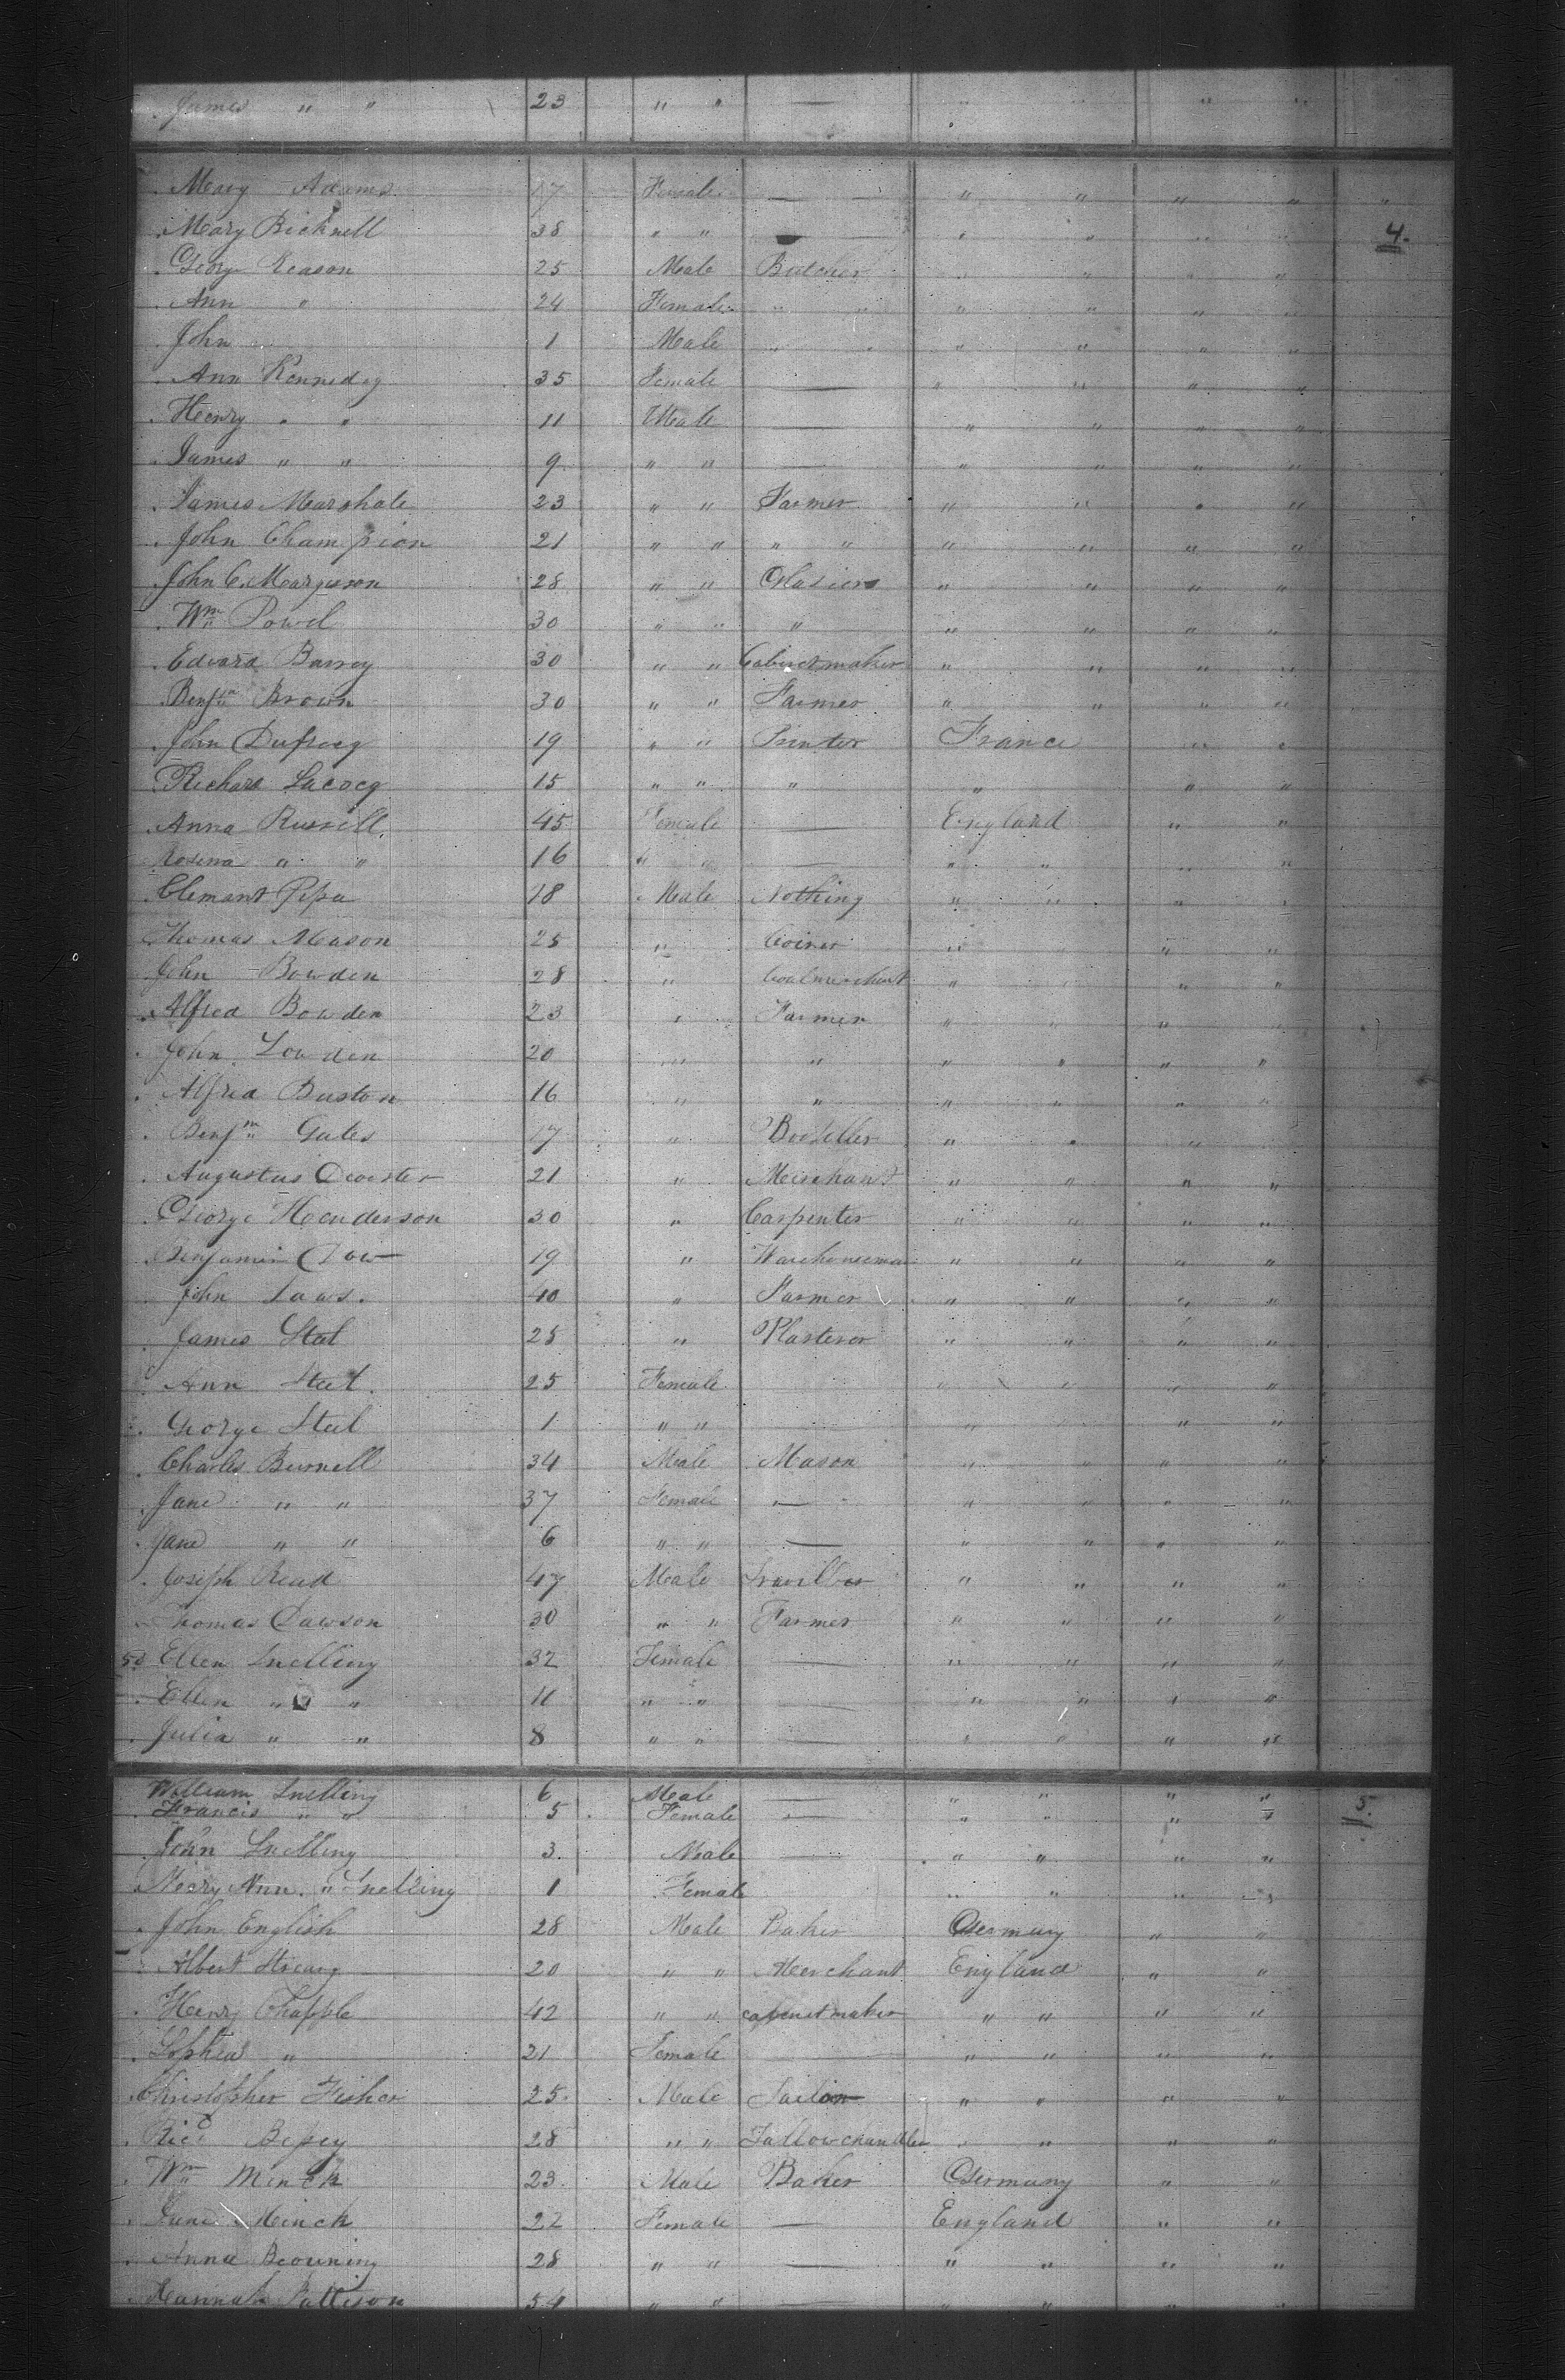 James " " 23 " " — " " " "
Mary Adams 17 Female — " " " " "
Mary Bicknell 38 " " — " " " " 4.
George Reason 25 Male Butcher " " " "
Ann " 24 Female " " " " " "
John " 1 Male " " " " " "
Ann Kennedy 35 Female — " " " "
Henry " " 11 Male — " " " "
James " " 9 " " — " " " "
James Marshale 23 " " Farmer " " " "
John Champion 21 " " " " " " " "
John C. Margeson 28 " " Glasier " " " "
Wm Powel 30 " " " " " " "
Edward Barrey 30 " " Cabinetmaker " " " "
Benjn Brown 30 " " Farmer " " " "
John Dufrocq 19 " " Printer France " "
Richard Lacocq 15 " " " " " "
Anna Russell. 45 Female — England " "
Rosina " " 16 " " — " " " "
Clemant Pipe 18 Male Nothing " " " "
Thomas Meason 25 " " " "
John Bowden 28 " Coalmerchant " " " "
Alfred Bowden 23 " Farmer " " " "
John Lowden 20 " " " " " "
Alfred Buston 16 " " " " " "
Benjm Gates 17 " " " "
Augustus 21 " Merchant " " " "
George Henderson 30 " Carpenter " " " "
Benjamin Dow 19 " Warehouseman " " " "
John Laws. 40 " Farmer " " " "
James Steel 25 " Plasterer " " " "
Ann Steel. 25 Female " " " "
George Steel 1 " " — " " " "
Charles Burnell 34 Male Mason " " " "
Jane " " 37 Female — " " " "
Jane " " 6 " " — " " " "
Joseph Read 47 Male " " " "
Thomas Dawson 30 " " Farmer " " " "
50 Ellen Snelling 32 Female — " " " "
Ellen " " 11 " " — " " " "
Julia " " 8 " " — " " " "
William Snelling 6 Male — " " " "
Francis " " 5 Female — " " " " 5.
John Snelling 3. Male — " " " "
Mary Ann " Snelling 1 Female " " " "
John English 28 Male Baker Germany " "
Albert 20 " " Merchant England " "
Henry Chapple 42 " " cabenetmaker " " " "
Sophia " 21 Female — " " " "
Christopher Fisher 25. Male Sailor " " " "
Ricd 28 " " Tallowchandler " " " "
Wm Minck 23. Male Baker Germany " "
June Meinck 22 Female — England " "
Anna Browning 28 " " — " " " "
Hannah Pattison 54 " " — " " " "